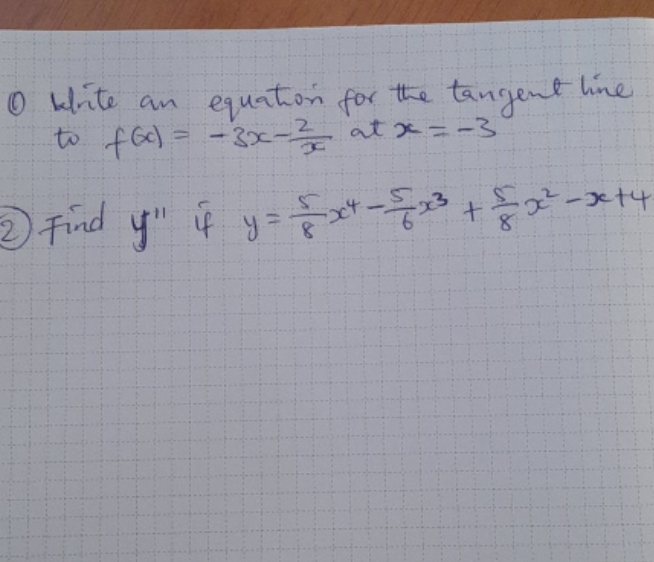 ① Write an equation for the tangent line
to f(x) = -3x - 2/x at x = -3
② Find y'' if y = 5/8 x⁴ - 5/6 x³ + 5/8 x² - x + 4